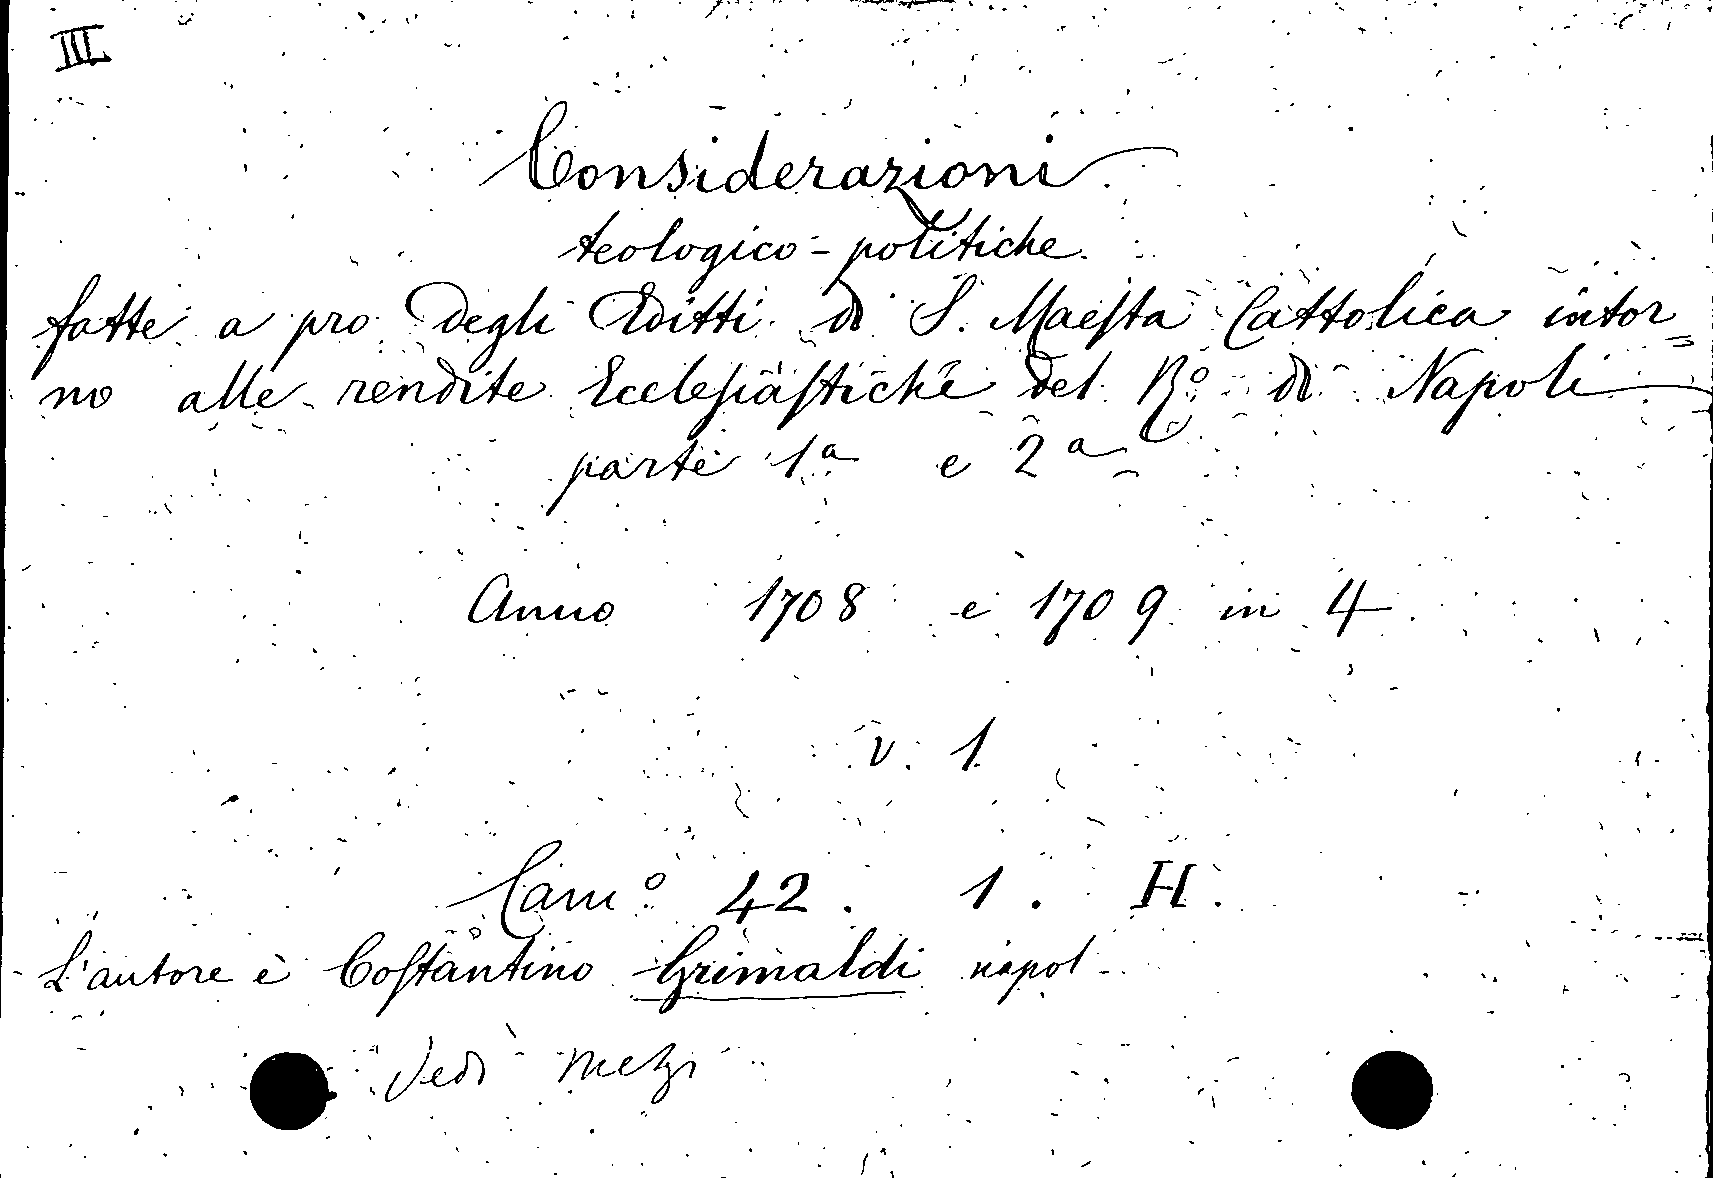 III
Considerazioni
teologico-politiche
fatte a pro degli Editti di S. Maesta Cattolica intor=
no alle rendite Ecclesiastiche del R.º di Napoli
parte 1ª e 2ª
Anno 1708 e 1709 in 4
v. 1
Camº 42. 1. H.
L'autore è Costantino Grimaldi napol.
Vedi Melzi